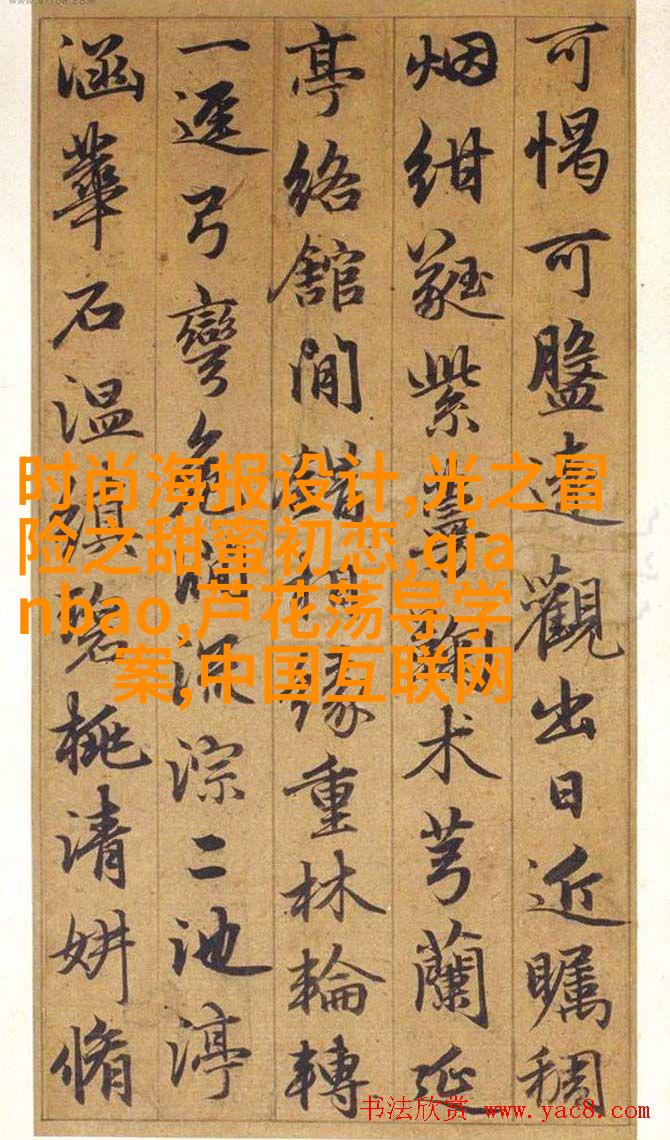 可愒可盤遠觀出日近矚稠
烟紺蕤紫术芎蘭延
亭絡館間錯緣重林輪轉
一逕弓彎危淙二池渟
涵華石温碧桃清妍脩
时尚海报设计,光之冒
险之甜蜜初恋,qia
nbao,芦花荡导学
案,中国互联网
书法欣赏 www.yac8.com